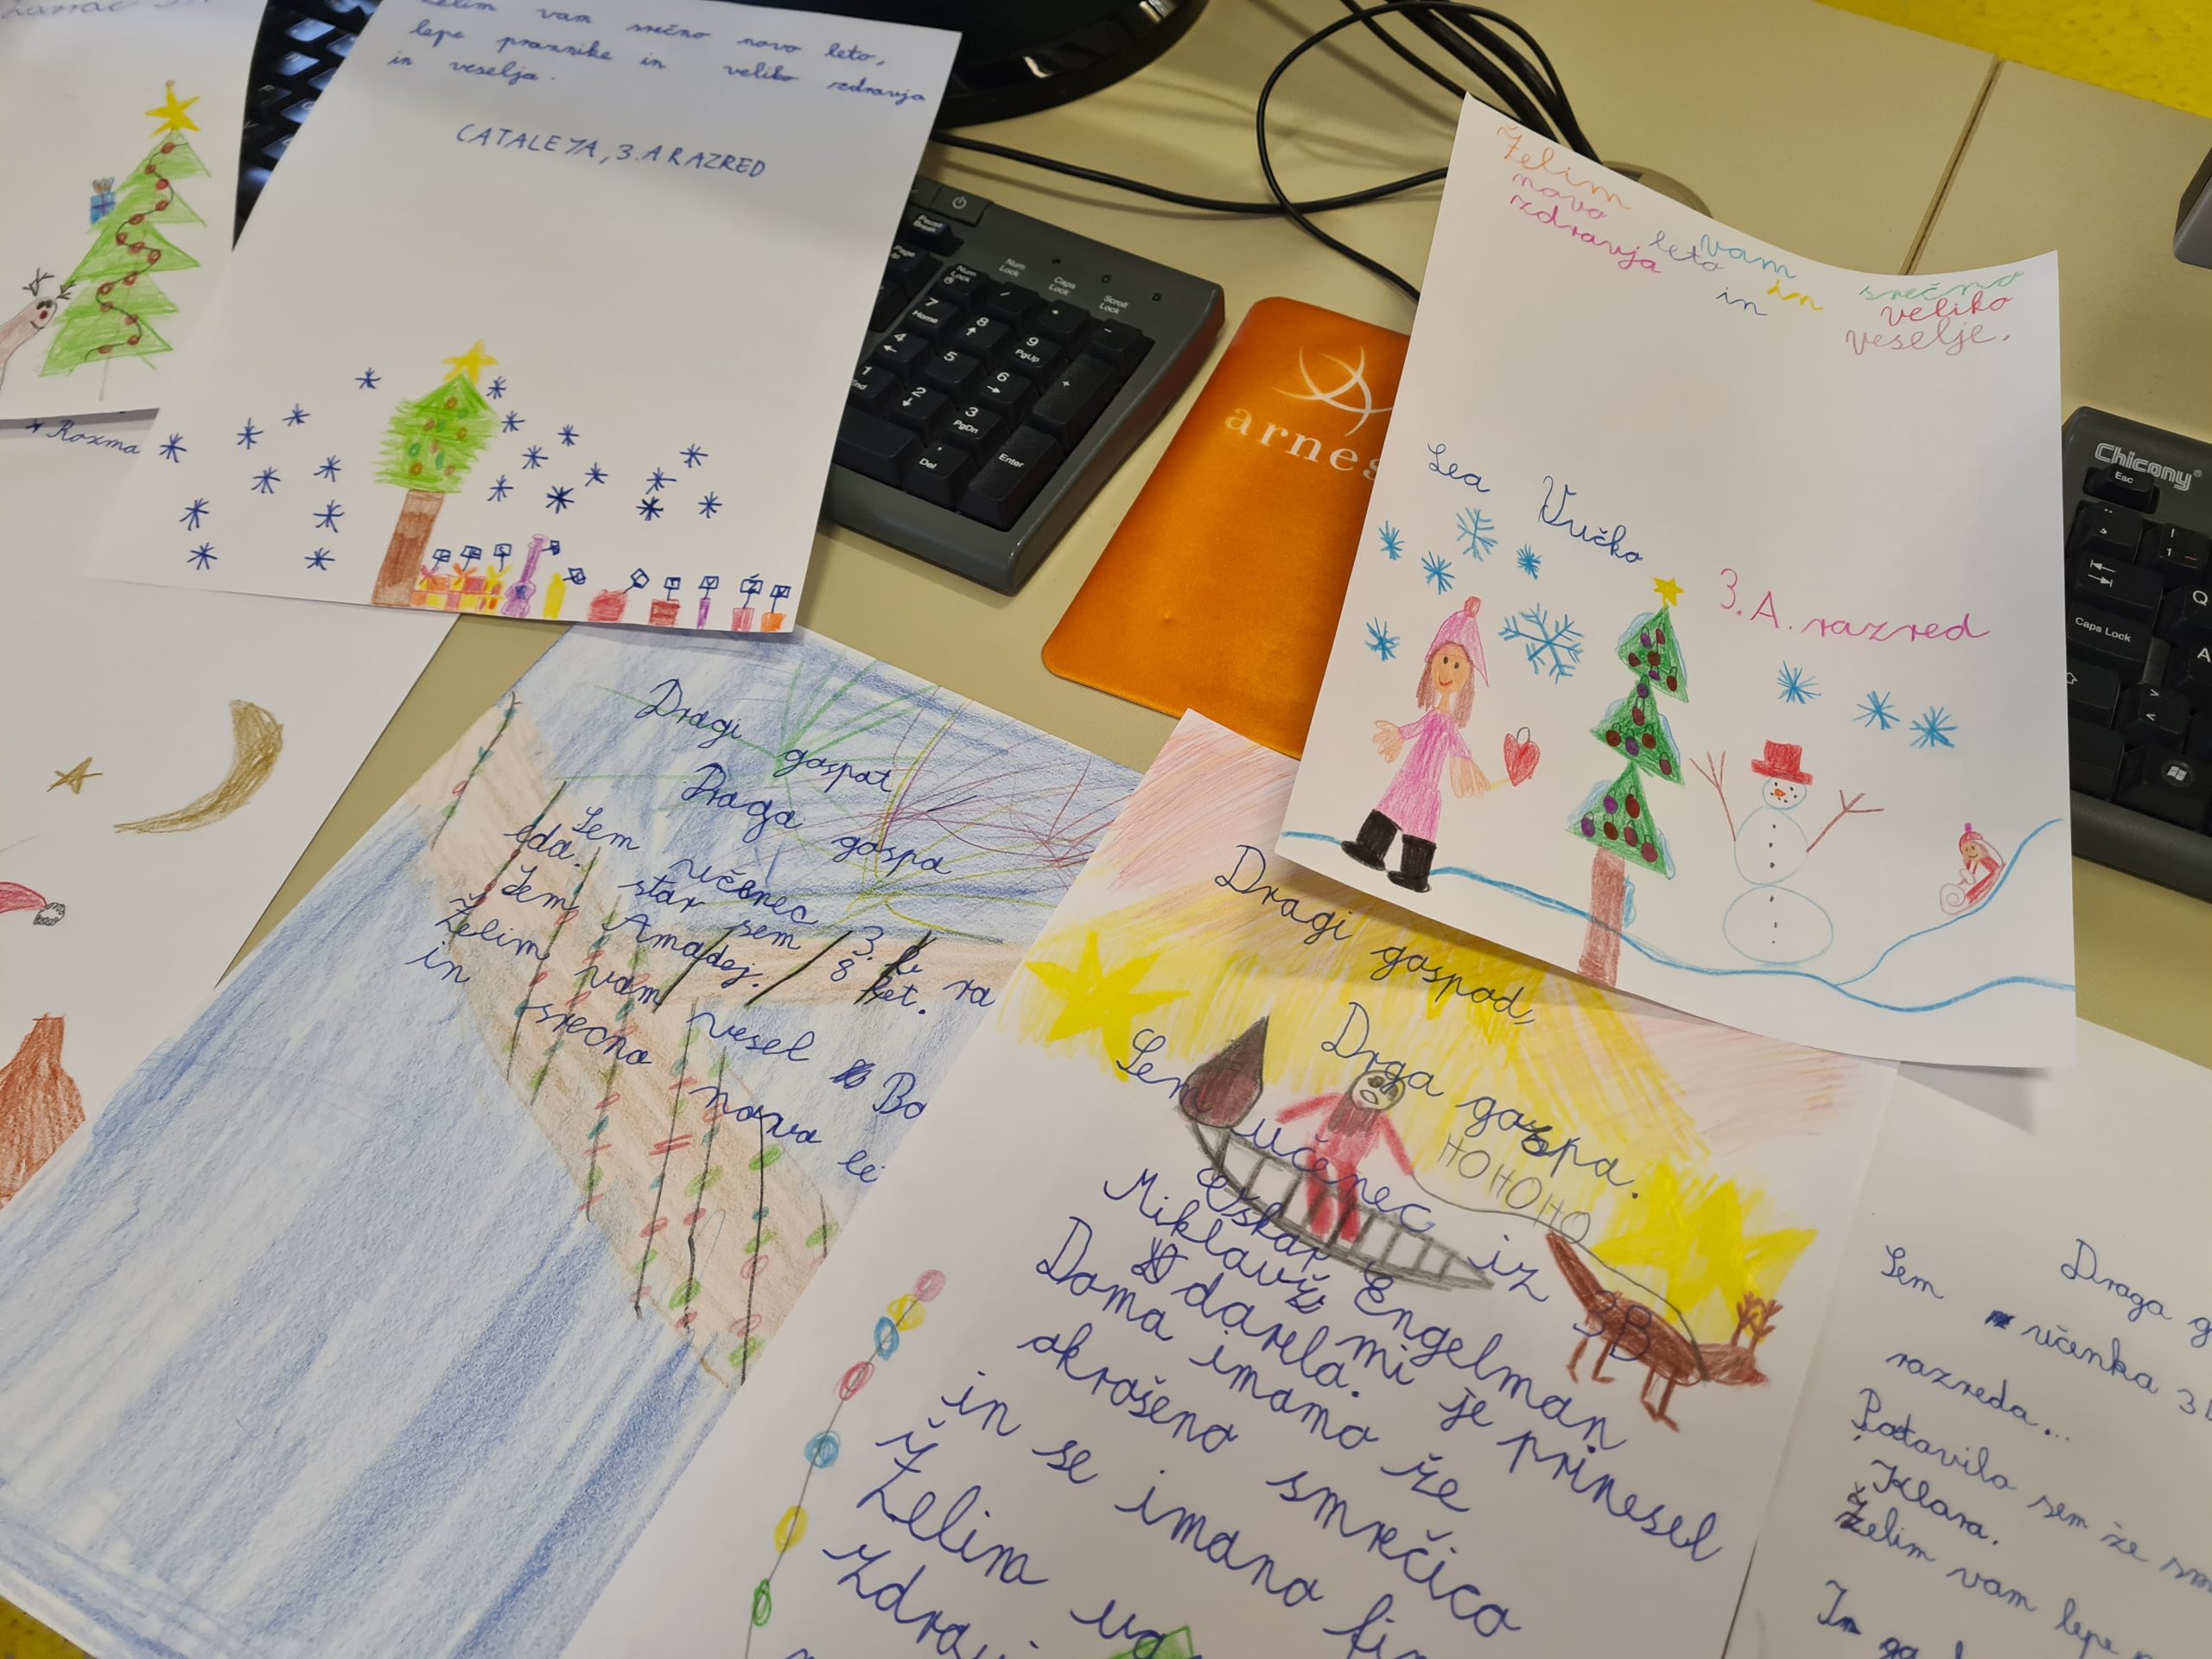 Želim vam srečno novo leto,
lepe praznike in veliko zdravja
in veselja.
CATALEYA, 3. A RAZRED
Želim vam srečno
novo leto in veliko
zdravja in veselje.
Lea Vučko
3. A. razred
arnes
Chicony
Esc
Caps Lock
Q
A
Pause
Break
Num
Lock
Caps
Lock
Scroll
Lock
Num
Lock
/
*
-
7
Home
8
9
PgUp
+
4
5
6
1
End
2
3
PgDn
Enter
.
Del
Dragi gospot
Draga gospa
Sem učenec 3. ra
da. star sem 8 let.
Sem Amadej.
Želim vam vesel Bo
in srečno novo le
Dragi gospod,
Drga gospa.
HOHOHO
Sem učenec iz 3B
Oskar Engelman
Miklavž mi je prinesel
darila.
Doma imamo že
okrošeno smrečico
in se imamo fin
Želim
Zdrav
Draga g
Sem učenka 3
razreda...
Postavila sem že sm
Klara.
Želim vam lepe p
In ga